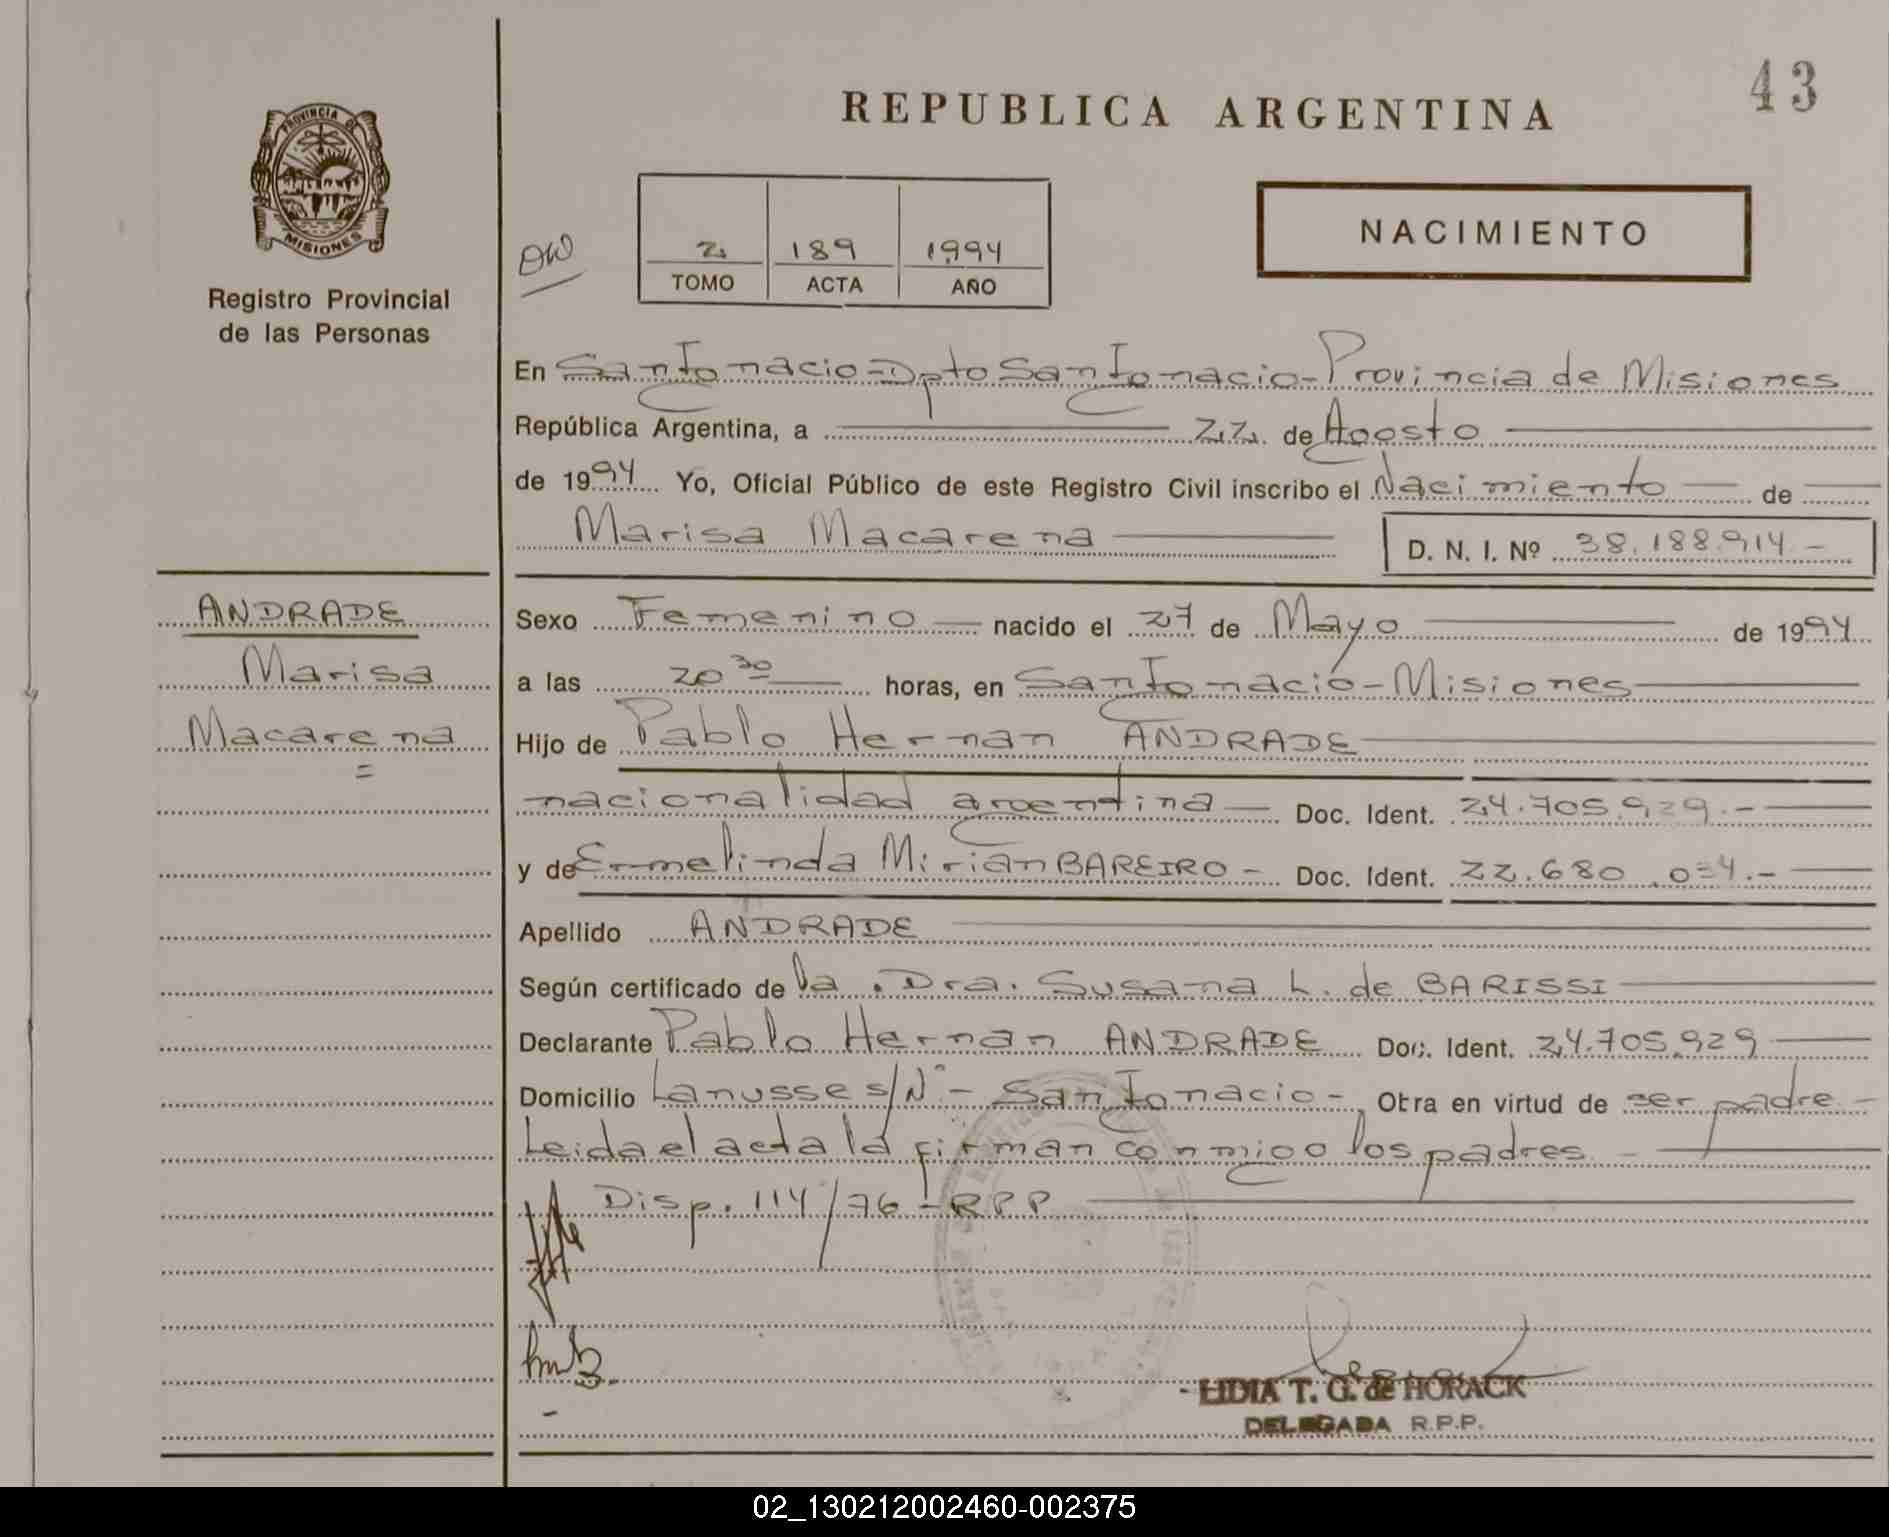 43
REPUBLICA ARGENTINA
PROVINCIA DE
MISIONES
Registro Provincial
de las Personas
2 189 1994
TOMO ACTA AÑO
NACIMIENTO
En San Ignacio - Dpto San Ignacio - Provincia de Misiones
República Argentina, a 22 de Agosto
de 1994 Yo, Oficial Público de este Registro Civil inscribo el Nacimiento de
Marisa Macarena D. N. I. Nº 38.188.914.-
ANDRADE
Marisa
Macarena
Sexo Femenino nacido el 27 de Mayo de 1994
a las 20 30 horas, en San Ignacio - Misiones
Hijo de Pablo Hernan ANDRADE
nacionalidad argentina Doc. Ident. 24.705.929.-
y de Ermelinda Mirian BAREIRO - Doc. Ident. 22.680.034.-
Apellido ANDRADE
Según certificado de la Dra. Susana L. de BARISSI
Declarante Pablo Hernan ANDRADE Doc. Ident. 24.705.929
Domicilio Lanusse s/Nº - San Ignacio -, Obra en virtud de ser padre -
Leida el acta la firman conmigo los padres. -
Disp. 114/76 - RPP
LIDIA T. G. de HORACK
DELEGADA R.P.P.
02_130212002460-002375